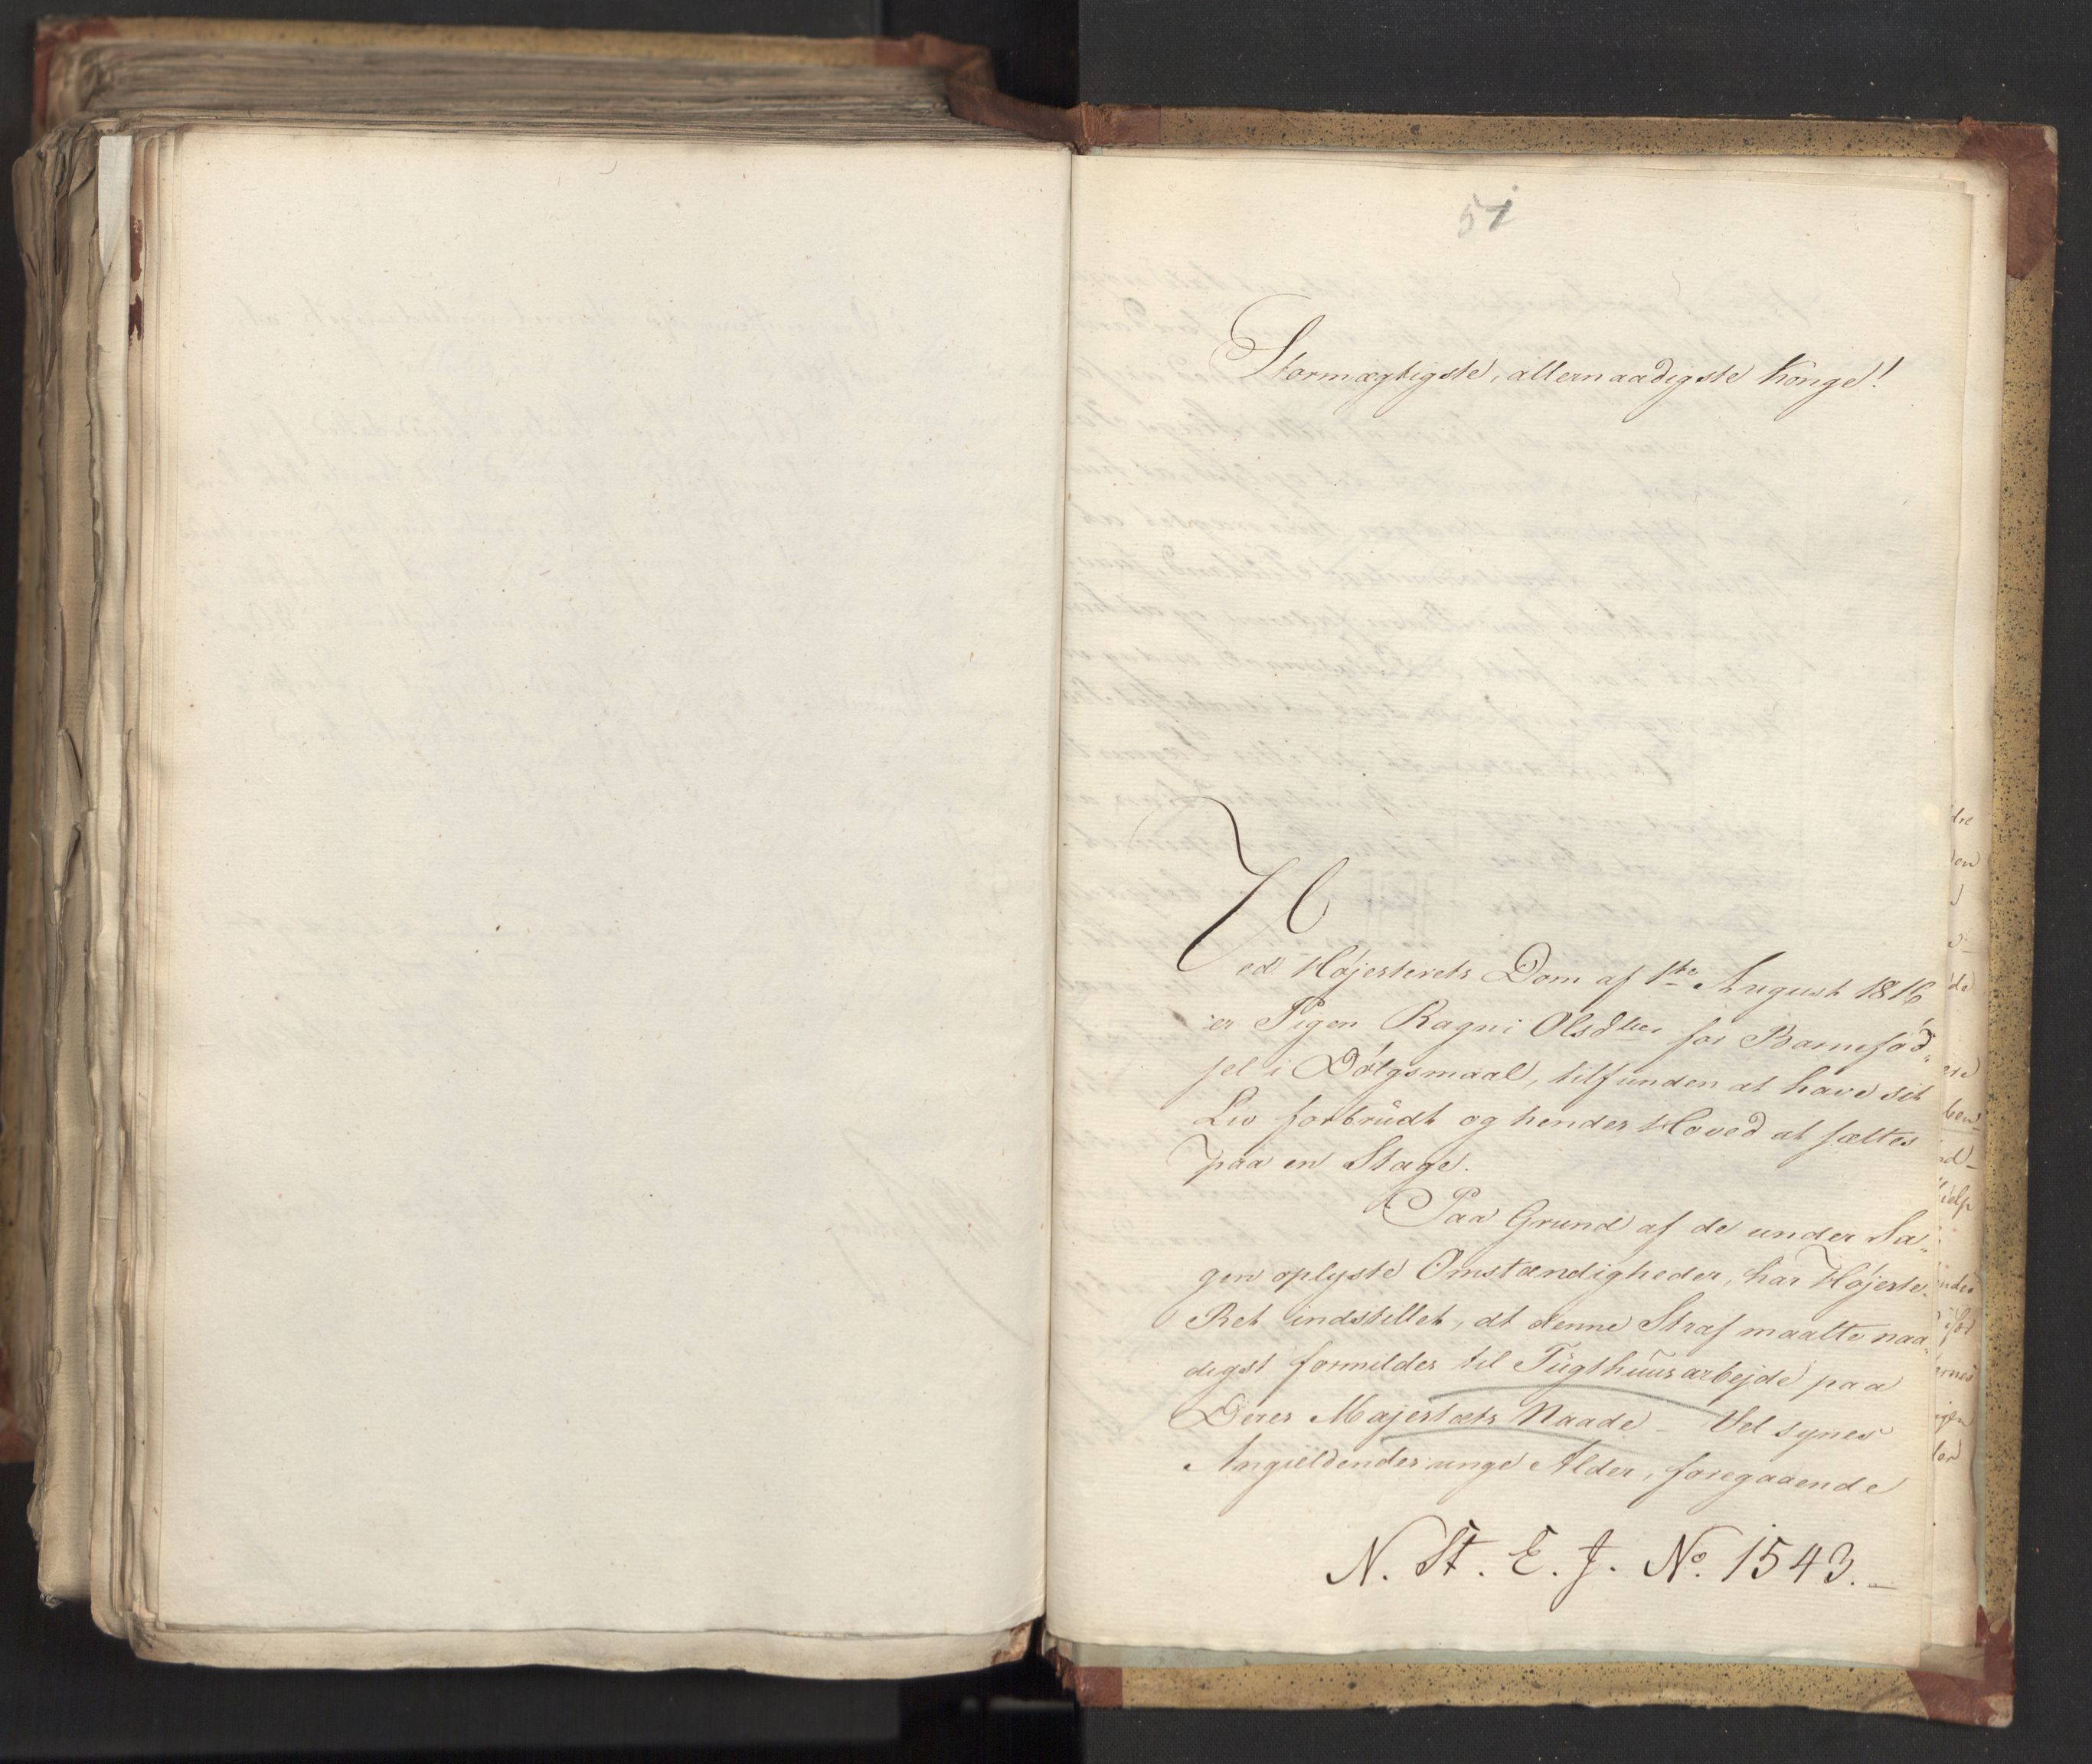 51
Stormægtigste, allernaadigste Konge!
Ved Højesterets Dom af 1ste August 1816
er Pigen Ragni Olsdtter for Barnefød„
sel i Dølgsmaal, tilfunden at have sit
Liv forbrudt og hendes Hoved at sættes
paa en Stage.
Paa Grund af de under Sa„
gen oplyste Omstændigheder, har Højeste„
Ret indstillet, at denne Straf maatte naa„
digst formildes til Tugthuusarbejde paa
Deres Majestæts Naade – Vel synes
Angieldendes unge Alder, foregaaende
N. St. E. J. No. 1543. –